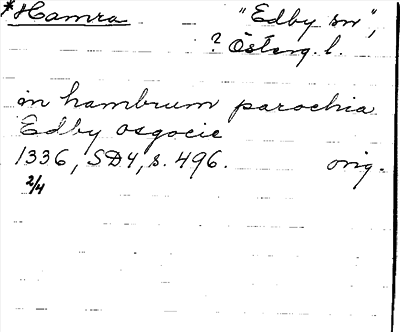 *Hamra "Edby sn",
? Österg. l.
in hambrum parochia
Edby osgocie
1336, SD4, s. 496. orig.
2/4